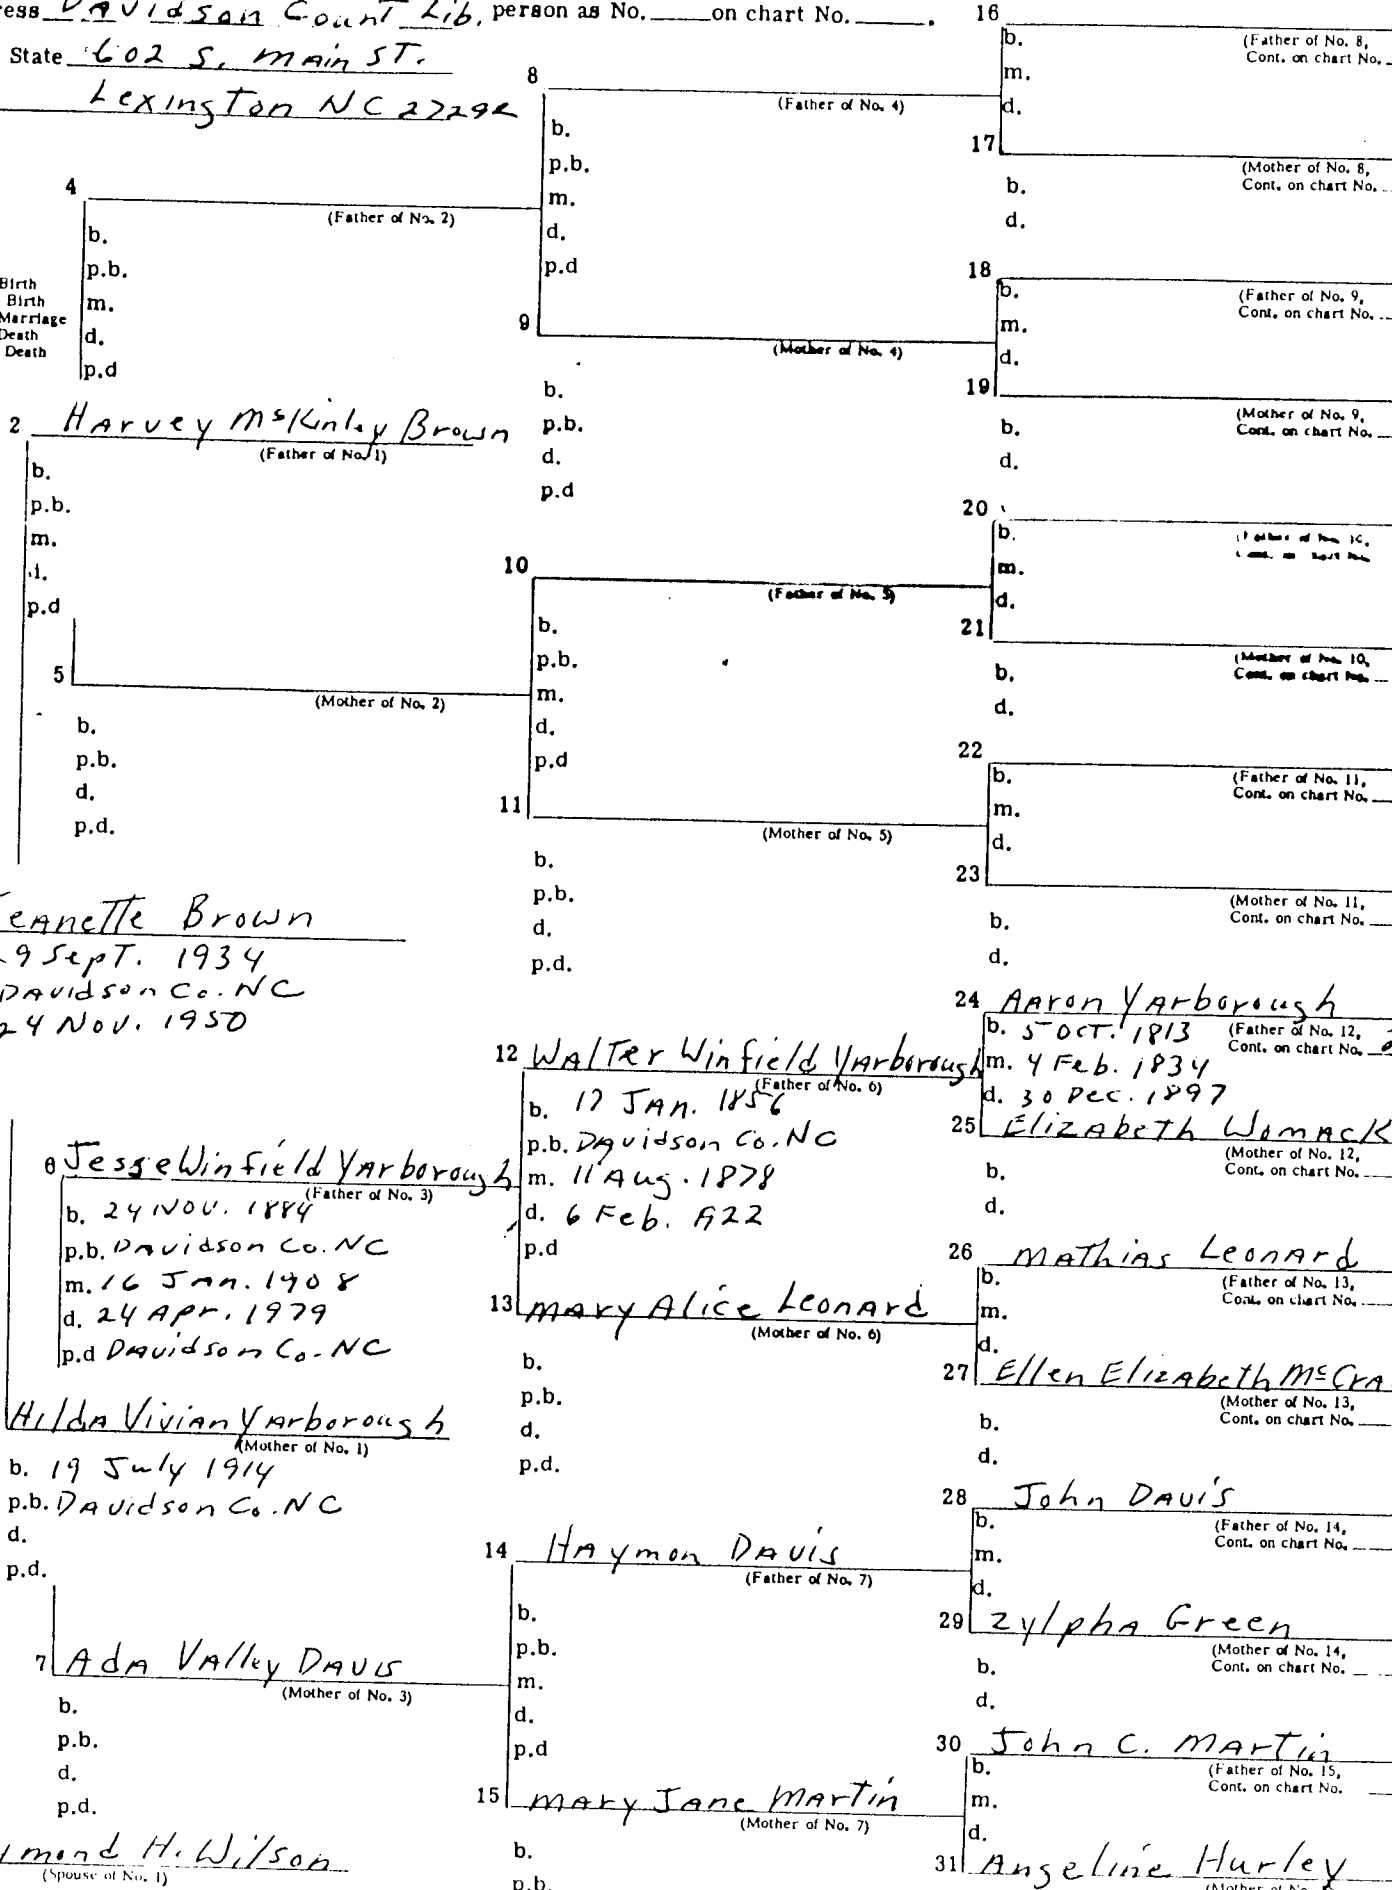 Davidson Count Lib. person as No. ____ on chart No. ____.
State 602 S. Main ST.
Lexington NC
4
(Father of No. 2)
b.
p.b.
m.
d.
p.d
Birth
Birth
Marriage
Death
Death
2 Harvey McKinley Brown
(Father of No. 1)
b.
p.b.
m.
d.
p.d
5
(Mother of No. 2)
b.
p.b.
d.
p.d.
Brown
Sept. 1934
Davidson Co. NC
24 Nov. 1950
6 Jesse Winfield Yarborough
(Father of No. 3)
b. 24 Nov. 1884
p.b. Davidson Co. NC
m. 16 Jan. 1908
d. 24 Apr. 1979
p.d Davidson Co. NC
Hilda Vivian Yarborough
(Mother of No. 1)
b. 19 July 1914
p.b. Davidson Co. NC
d.
p.d.
7 Ada Valley Davis
(Mother of No. 3)
b.
p.b.
d.
p.d.
H. Wilson
(Spouse of No. 1)
8
(Father of No. 4)
b.
p.b.
m.
d.
p.d
9
(Mother of No. 4)
b.
p.b.
d.
p.d
10
(Father of No. 5)
b.
p.b.
m.
d.
p.d
11
(Mother of No. 5)
b.
p.b.
d.
p.d.
12 Walter Winfield Yarborough
(Father of No. 6)
b. 17 Jan. 1856
p.b. Davidson Co. NC
m. 11 Aug. 1878
d. 6 Feb.
p.d
13 Mary Alice Leonard
(Mother of No. 6)
b.
p.b.
d.
p.d.
14 Haymon Davis
(Father of No. 7)
b.
p.b.
m.
d.
p.d
15 Mary Jane Martin
(Mother of No. 7)
b.
p.b.
16
b.
(Father of No. 8,
Cont. on chart No.
m.
d.
17
(Mother of No. 8,
Cont. on chart No.
b.
d.
18
b.
(Father of No. 9,
Cont. on chart No.
m.
d.
19
(Mother of No. 9,
Cont. on chart No.
b.
d.
20
b.
m.
d.
21
(Mother of No. 10,
Cont. on chart No.
b.
d.
22
b.
(Father of No. 11,
Cont. on chart No.
m.
d.
23
(Mother of No. 11,
Cont. on chart No.
b.
d.
24 Aaron Yarborough
b. 5 Oct. 1813 (Father of No. 12,
Cont. on chart No.
m. 4 Feb. 1834
d. 30 Dec. 1897
25 Elizabeth Womack
(Mother of No. 12,
Cont. on chart No.
b.
d.
26 Mathias Leonard
b.
(Father of No. 13,
Cont. on chart No.
m.
d.
27 Ellen Elizabeth McCra
(Mother of No. 13,
Cont. on chart No.
b.
d.
28 John Davis
b.
(Father of No. 14,
Cont. on chart No.
m.
d.
29 Zylpha Green
(Mother of No. 14,
Cont. on chart No.
b.
d.
30 John C. Martin
b.
(Father of No. 15,
Cont. on chart No.
m.
d.
31 Angeline Hurley
(Mother of No.